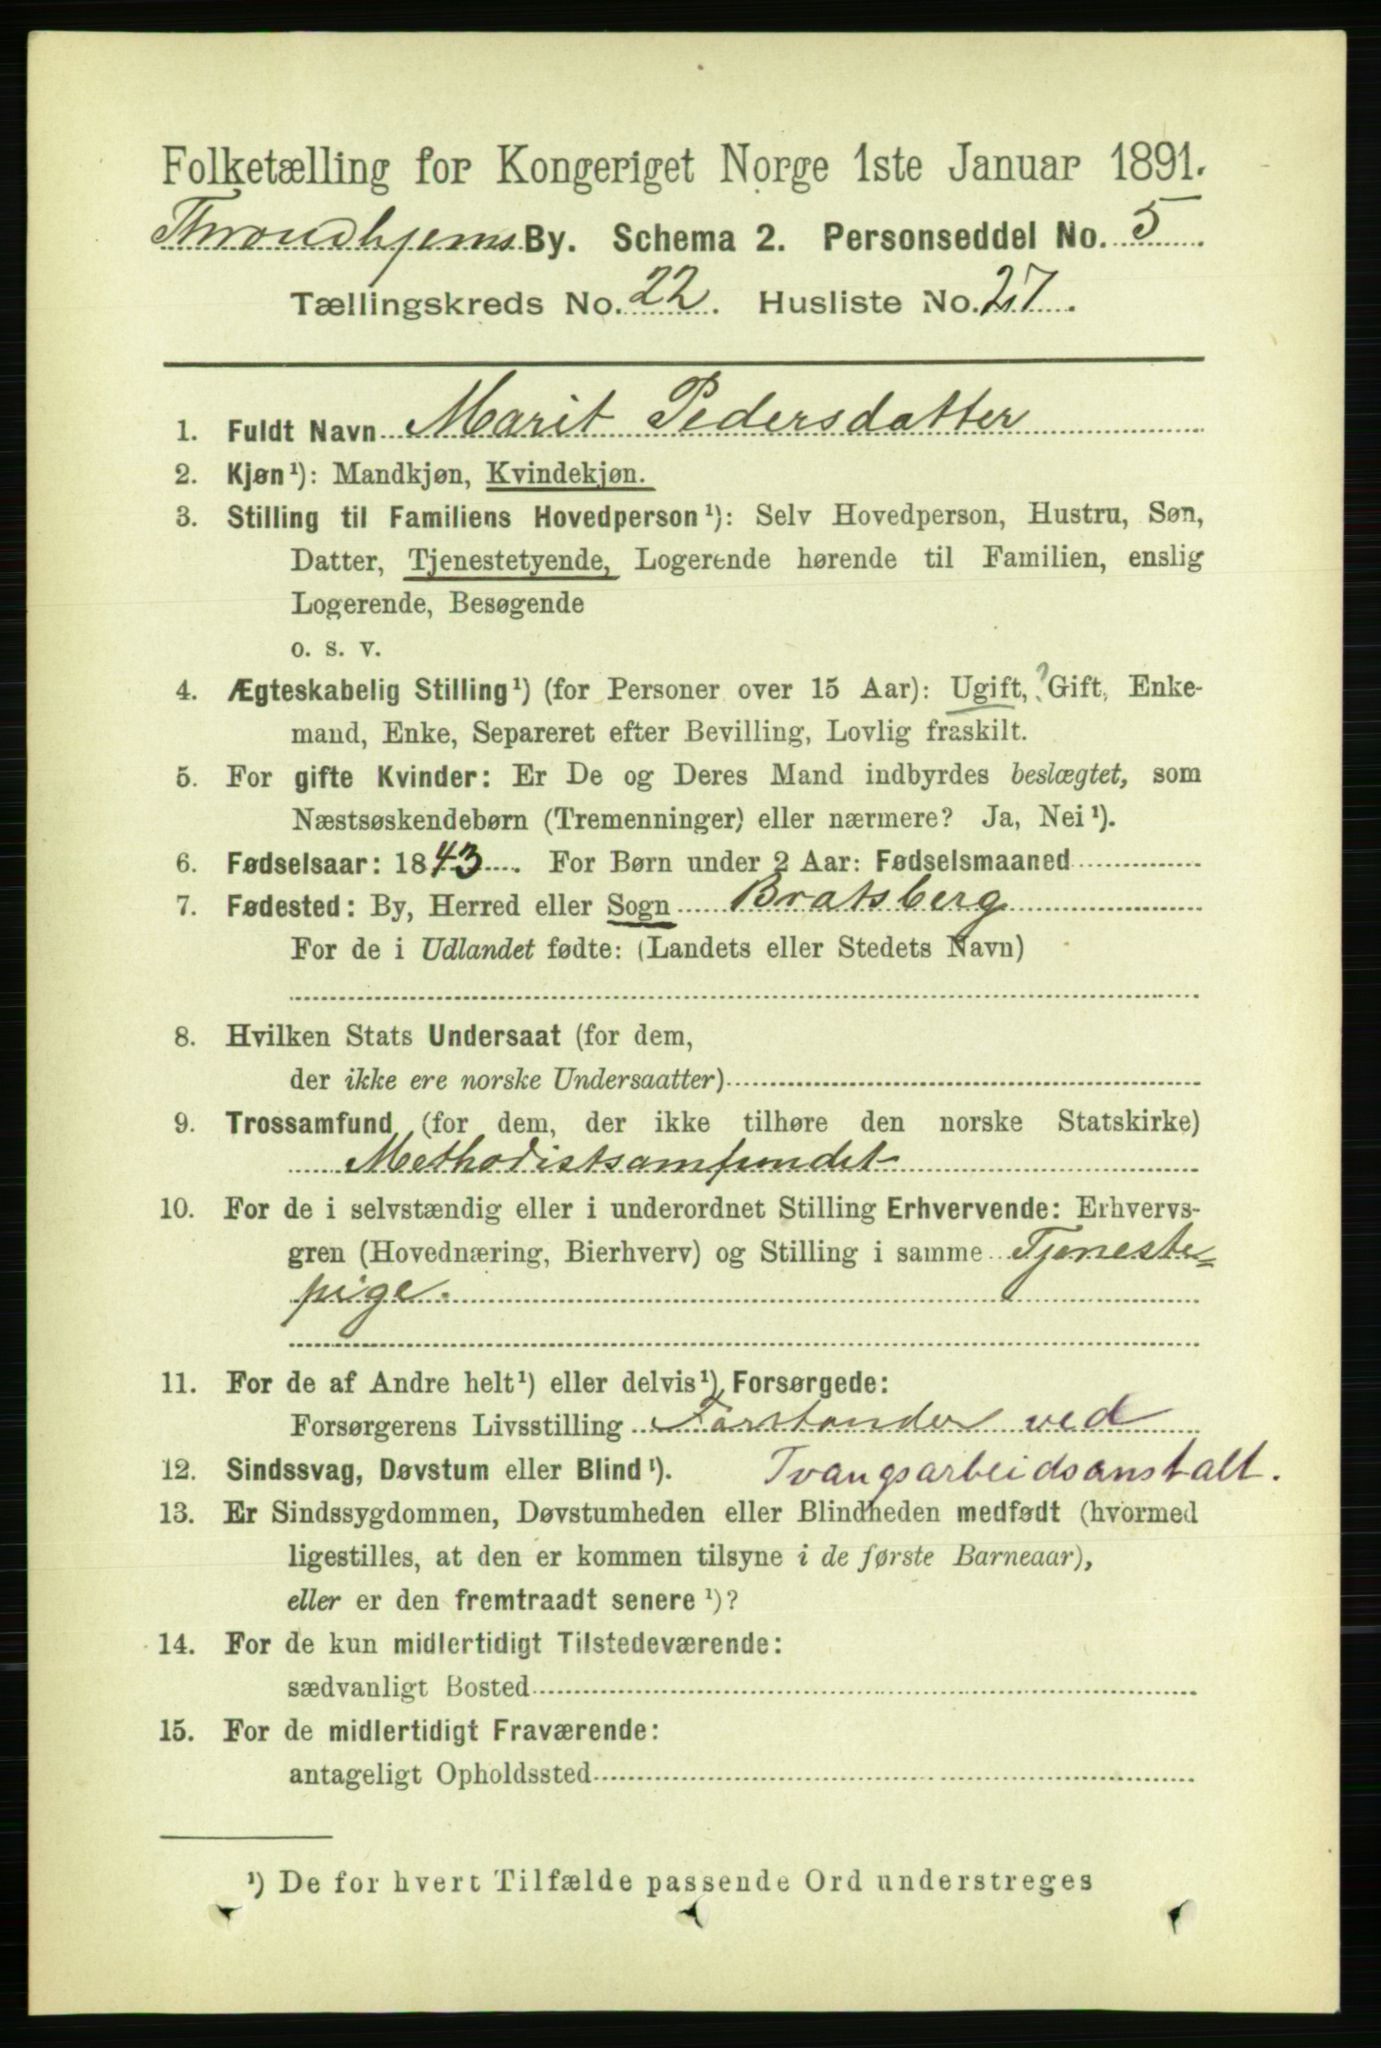 Folketælling for Kongeriget Norge 1ste Januar 1891.
Throndhjems By. Schema 2. Personseddel No. 5
Tællingskreds No. 22. Husliste No. 27.
1. Fuldt Navn Marit Pedersdatter
2. Kjøn¹): Mandkjøn, Kvindekjøn.
3. Stilling til Familiens Hovedperson¹): Selv Hovedperson, Hustru, Søn,
Datter, Tjenestetyende, Logerende hørende til Familien, enslig
Logerende, Besøgende
o. s. v.
4. Ægteskabelig Stilling¹) (for Personer over 15 Aar): Ugift, ? Gift, Enke-
mand, Enke, Separeret efter Bevilling, Lovlig fraskilt.
5. For gifte Kvinder: Er De og Deres Mand indbyrdes beslægtet, som
Næstsøskendebørn (Tremenninger) eller nærmere? Ja, Nei¹).
6. Fødselsaar: 1843. For Børn under 2 Aar: Fødselsmaaned
7. Fødested: By, Herred eller Sogn Bratsberg
For de i Udlandet fødte: (Landets eller Stedets Navn)
8. Hvilken Stats Undersaat (for dem,
der ikke ere norske Undersaatter)
9. Trossamfund (for dem, der ikke tilhøre den norske Statskirke)
Methodistsamfundet
10. For de i selvstændig eller i underordnet Stilling Erhvervende: Erhvervs-
gren (Hovednæring, Bierhverv) og Stilling i samme Tjeneste=
pige.
11. For de af Andre helt¹) eller delvis¹) Forsørgede:
Forsørgerens Livsstilling Forstander ved
12. Sindssvag, Døvstum eller Blind¹). Tvangsarbeidsanstalt.
13. Er Sindssygdommen, Døvstumheden eller Blindheden medfødt (hvormed
ligestilles, at den er kommen tilsyne i de første Barneaar),
eller er den fremtraadt senere¹)?
14. For de kun midlertidigt Tilstedeværende:
sædvanligt Bosted
15. For de midlertidigt Fraværende:
antageligt Opholdssted
¹) De for hvert Tilfælde passende Ord understreges